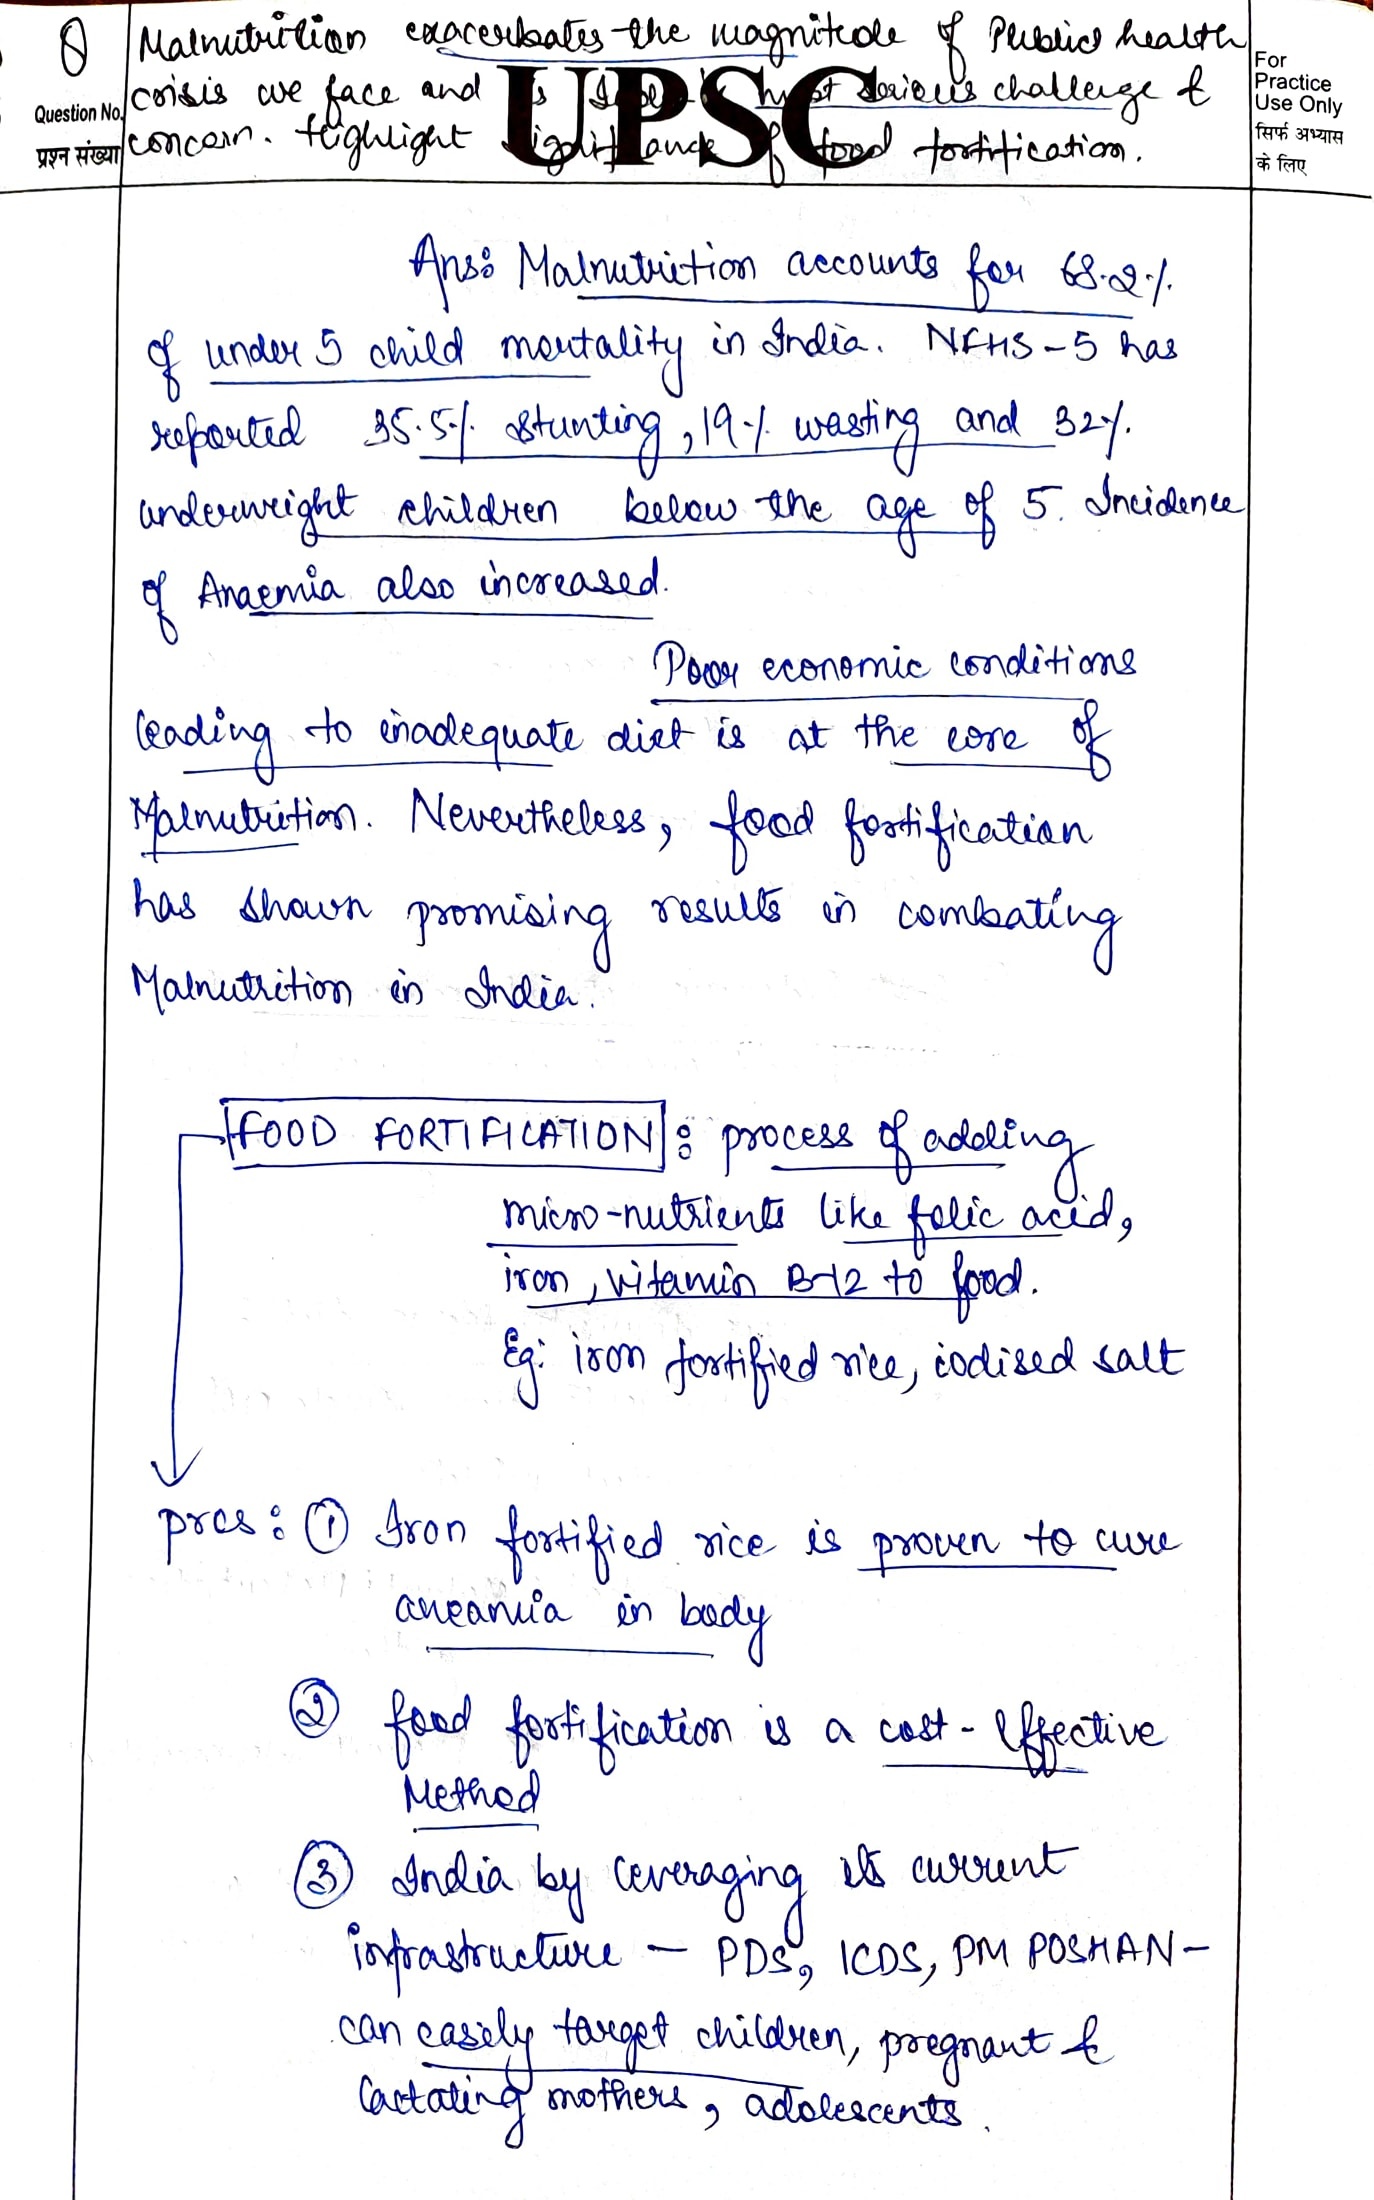 Q
Malnutrition exacerbates the magnitude of Public health
crisis we face and is most serious challenge &
concern. Highlight significance of food fortification.
UPSC
Question No.
प्रश्न संख्या
For
Practice
Use Only
सिर्फ अभ्यास
के लिए
Ans: Malnutrition accounts for 68.2%
of under 5 child mortality in India. NFHS-5 has
reported 35.5% stunting, 19% wasting and 32%
underweight children below the age of 5. Incidence
of Anaemia also increased.
Poor economic conditions
leading to inadequate diet is at the core of
Malnutrition. Nevertheless, food fortification
has shown promising results in combating
Malnutrition in India.
FOOD FORTIFICATION : process of adding
micro-nutrients like folic acid,
iron, vitamin B-12 to food.
Eg: iron fortified rice, iodised salt
pros: ① Iron fortified rice is proven to cure
aneamia in body
② food fortification is a cost-effective
Method
③ India by leveraging its current
infrastructure — PDS, ICDS, PM POSHAN -
can easily target children, pregnant &
lactating mothers, adolescents.